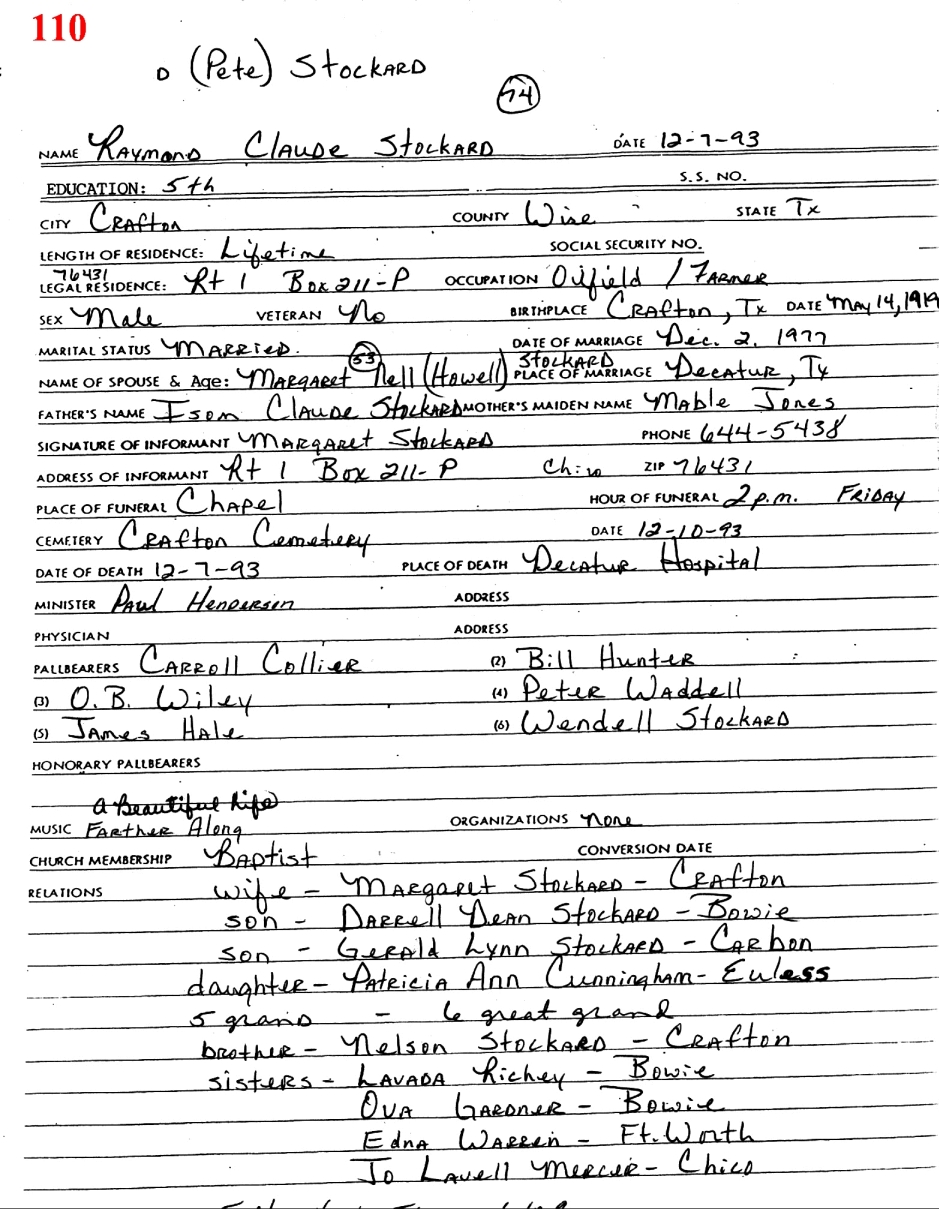 110
D (Pete) Stockard
74
NAME Raymond Claude Stockard DATE 12-7-93
EDUCATION: 5th S.S. NO.
CITY Crafton COUNTY Wise STATE Tx
LENGTH OF RESIDENCE: Lifetime SOCIAL SECURITY NO.
76431
LEGAL RESIDENCE: Rt 1 Box 211-P OCCUPATION Oilfield / Farmer
SEX Male VETERAN No BIRTHPLACE Crafton, Tx DATE May 14, 1919
MARITAL STATUS Married. DATE OF MARRIAGE Dec. 2, 1977
53 Stockard
NAME OF SPOUSE & Age: Margaret Nell (Howell) PLACE OF MARRIAGE Decatur, Tx
FATHER'S NAME Isom Claude Stockard MOTHER'S MAIDEN NAME Mable Jones
SIGNATURE OF INFORMANT Margaret Stockard PHONE 644-5438
ADDRESS OF INFORMANT Rt 1 Box 211-P Chico ZIP 76431
PLACE OF FUNERAL Chapel HOUR OF FUNERAL 2 p.m. Friday
CEMETERY Crafton Cemetery DATE 12-10-93
DATE OF DEATH 12-7-93 PLACE OF DEATH Decatur Hospital
MINISTER Paul Henderson ADDRESS
PHYSICIAN ADDRESS
PALLBEARERS Carroll Collier (2) Bill Hunter
(3) O.B. Wiley (4) Peter Waddell
(5) James Hale (6) Wendell Stockard
HONORARY PALLBEARERS
a Beautiful Life
MUSIC Farther Along ORGANIZATIONS None
CHURCH MEMBERSHIP Baptist CONVERSION DATE
RELATIONS wife - Margaret Stockard - Crafton
son - Darrell Dean Stockard - Bowie
son - Gerald Lynn Stockard - Carbon
daughter - Patricia Ann Cunningham - Euless
5 grand - 6 great grand
brother - Nelson Stockard - Crafton
sisters - Lavada Richey - Bowie
Ova Gardner - Bowie
Edna Warren - Ft. Worth
Jo Lavell Mercer - Chico